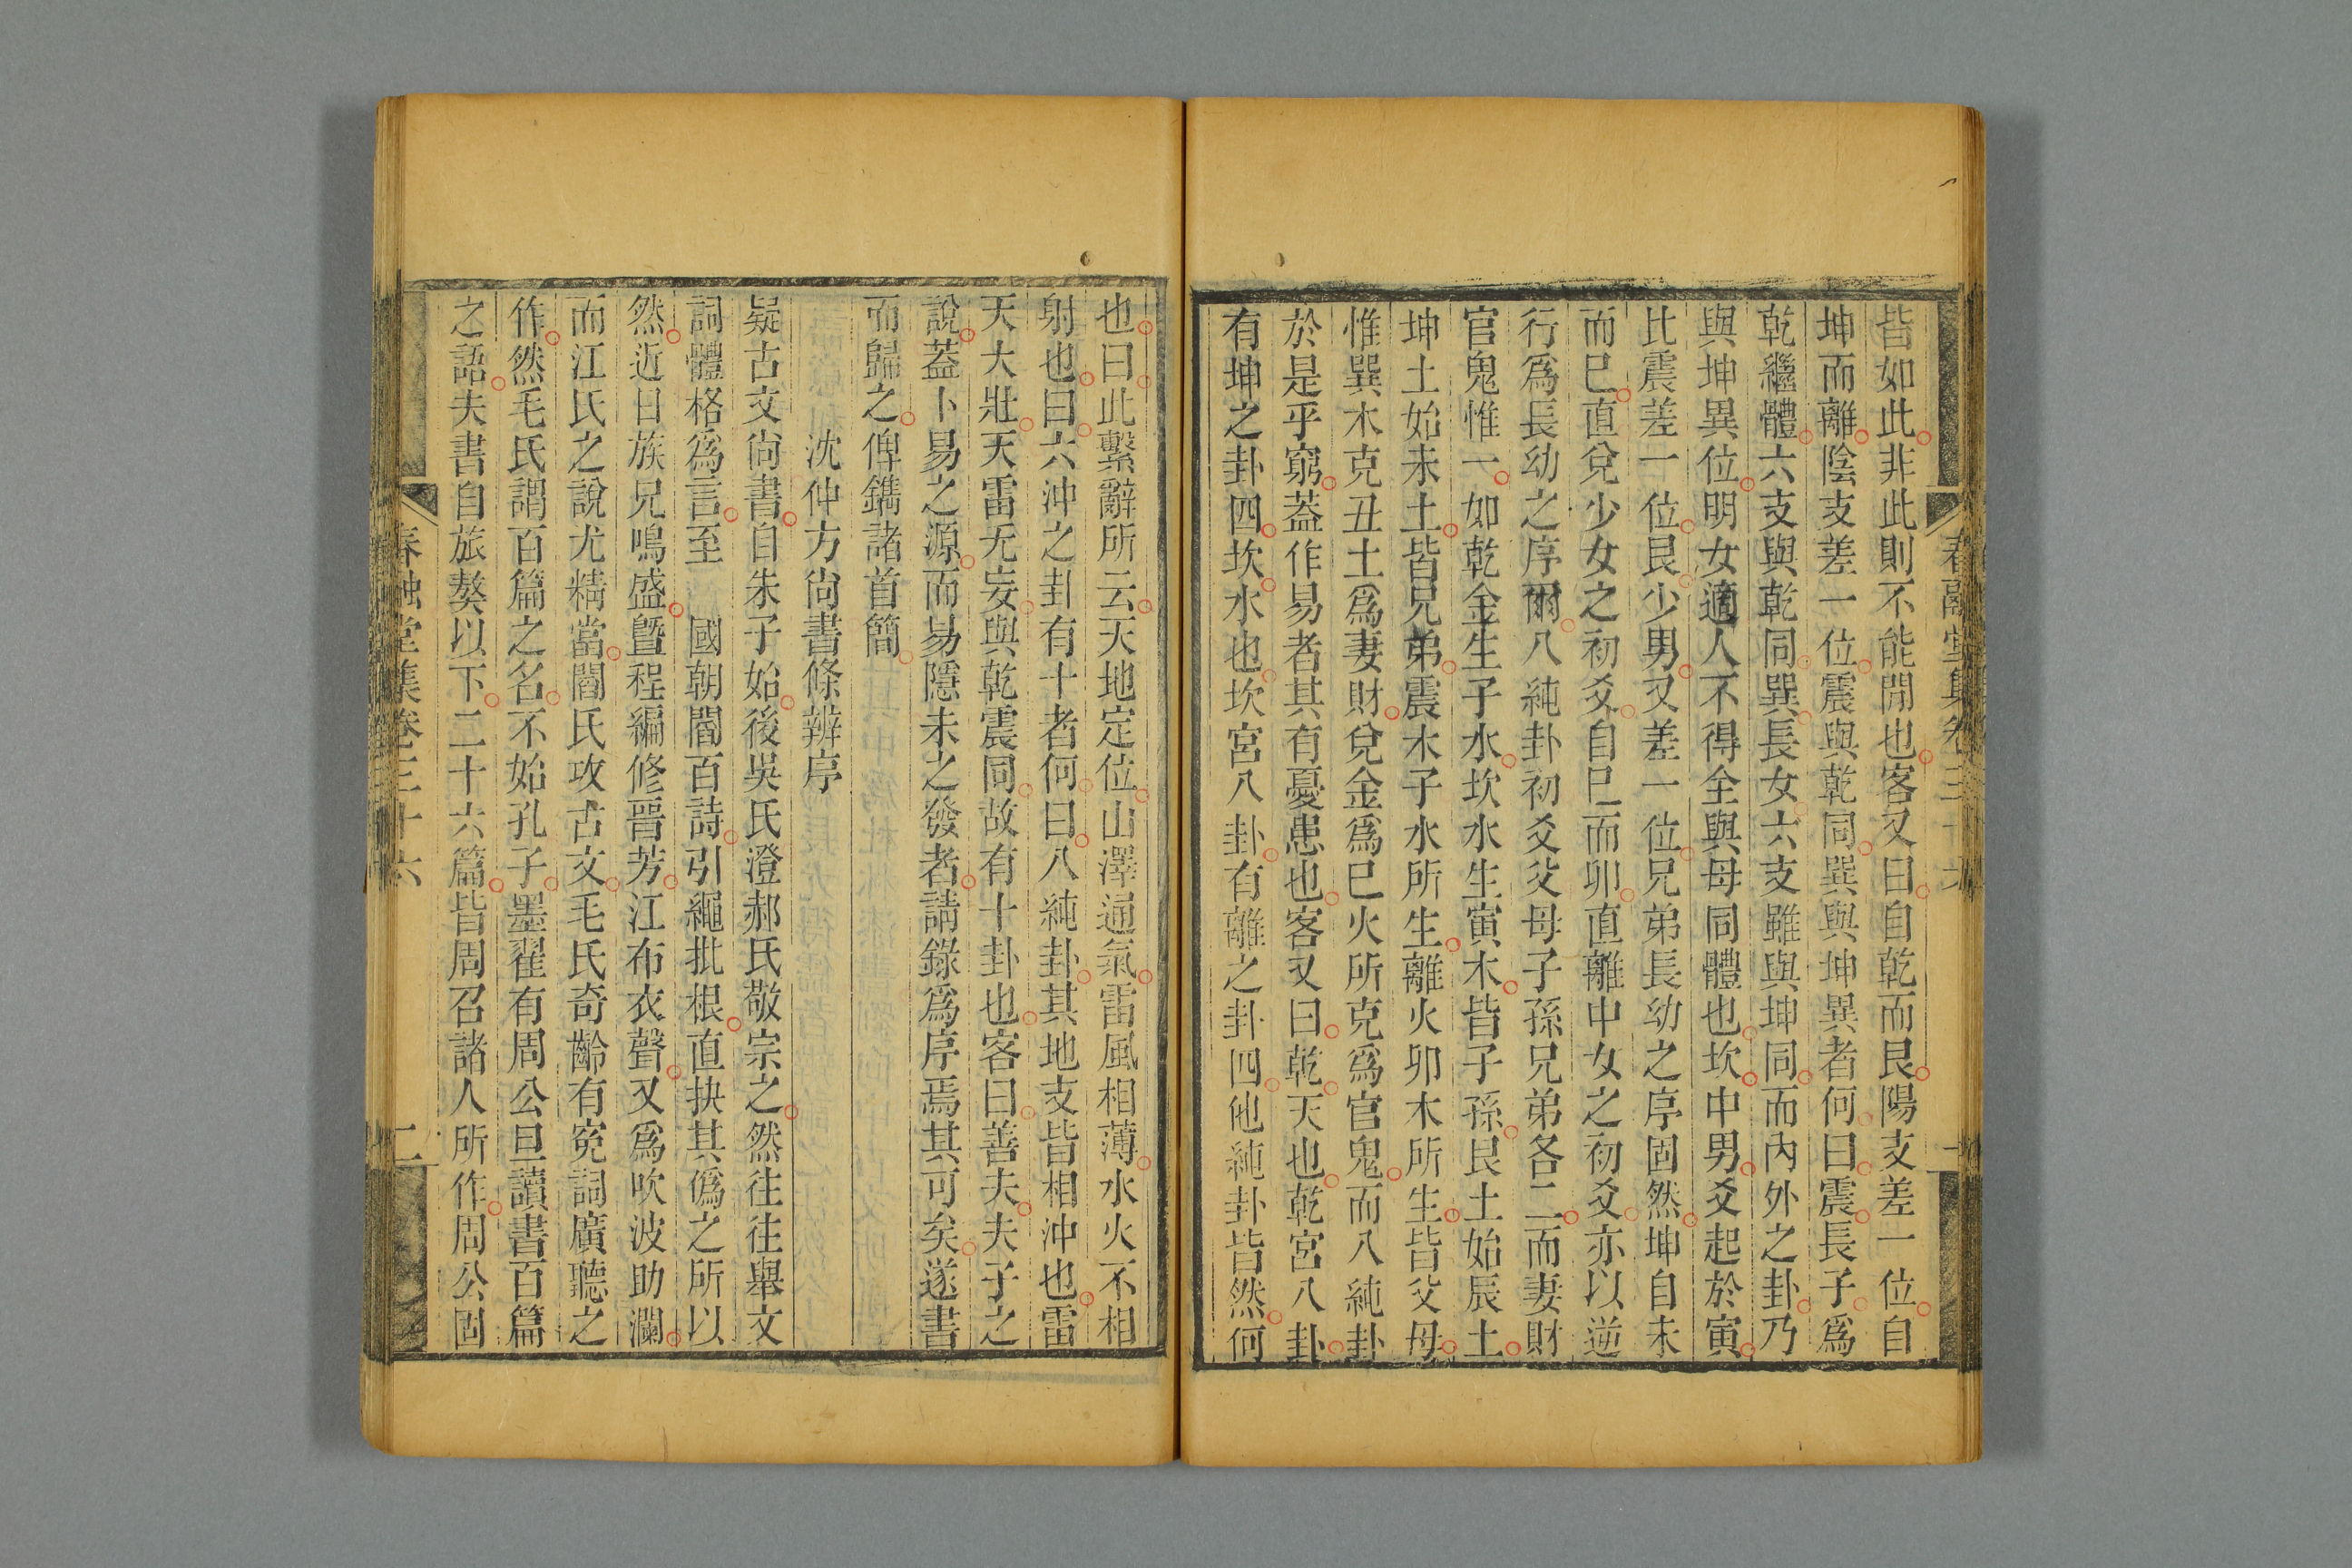 皆如此非此則不能閒也客又曰自乾而艮陽支差一位自
坤而離陰支差一位震與乾同巽與坤異者何曰震長子爲
乾繼體六支與乾同巽長女六支雖與坤同而內外之卦乃
與坤異位明女適人不得全與母同體也坎中男爻起於寅
比震差一位艮少男又差一位兄弟長幼之序固然坤自未
而巳直兌少女之初爻自巳而卯直離中女之初爻亦以逆
行爲長幼之序爾八純卦初爻父母子孫兄弟各二而妻財
官鬼惟一如乾金生子水坎水生寅木皆子孫艮土始辰土
坤土始未土皆兄弟震木子水所生離火卯木所生皆父母
惟巽木克丑土爲妻財兌金爲巳火所克爲官鬼而八純卦
於是乎窮蓋作易者其有憂患也客又曰乾天也乾宮八卦
有坤之卦四坎水也坎宮八卦有離之卦四他純卦皆然何
也曰此繫辭所云天地定位山澤通氣雷風相薄水火不相
射也曰六沖之卦有十者何曰八純卦其地支皆相沖也雷
天大壯天雷无妄與乾震同故有十卦也客曰善夫夫子之
說蓋卜易之源而易隱未之發者請錄爲序焉其可矣遂書
而歸之俾鐫諸首簡
沈仲方尙書條辨序
疑古文尙書自朱子始後吳氏澄郝氏敬宗之然往往舉文
詞體格爲言至 國朝閻百詩引繩批根直抉其僞之所以
然近日族兄鳴盛曁程編修晉芳江布衣聲又爲吹波助瀾
而江氏之說尤精當閻氏攻古文毛氏奇齡有寃詞廣聽之
作然毛氏謂百篇之名不始孔子墨翟有周公旦讀書百篇
之語夫書自旅獒以下二十六篇皆周召諸人所作周公固
春融堂集卷三十六
二